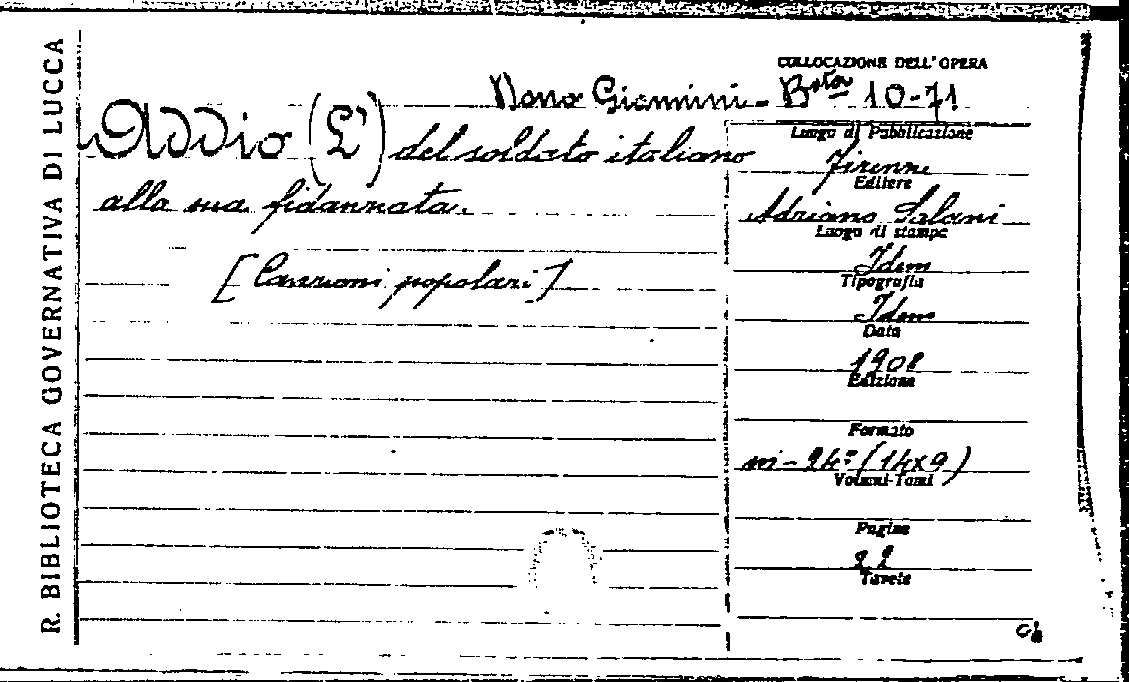 R. BIBLIOTECA GOVERNATIVA DI LUCCA
COLLOCAZIONE DELL'OPERA
Giannini - Bsta 10-71
Addio (L') del soldato italiano
alla sua fidanzata.
[Canzoni popolari]
Luogo di Pubblicazione
Firenze
Editore
Adriano Salani
Luogo di stampa
Idem
Tipografia
Idem
Data
1908
Edizione
Formato
in-24º (14x9)
Volumi-Tomi
Pagine
22
Tavole